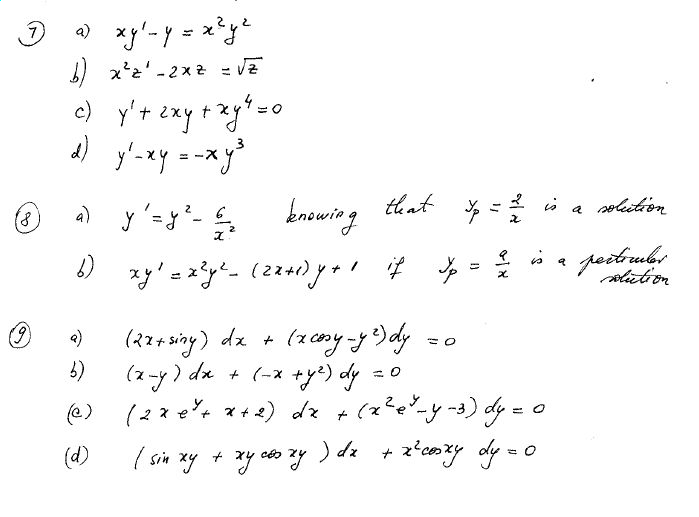 ⑦ a) xy' - y = x²y²
b) x²z' - 2xz = √z
c) y' + 2xy + xy⁴ = 0
d) y' - xy = -xy³
⑧ a) y' = y² - 6/x² knowing that yₚ = 2/x is a solution
b) xy' = x²y² - (2x+1)y + 1 if yₚ = a/x is a perticular solution
⑨ a) (2x + siny) dx + (x cosy - y²) dy = 0
b) (x-y) dx + (-x + y²) dy = 0
(c) (2xeʸ + x + 2) dx + (x²eʸ - y - 3) dy = 0
(d) (sin xy + xy cos xy) dx + x² cosxy dy = 0